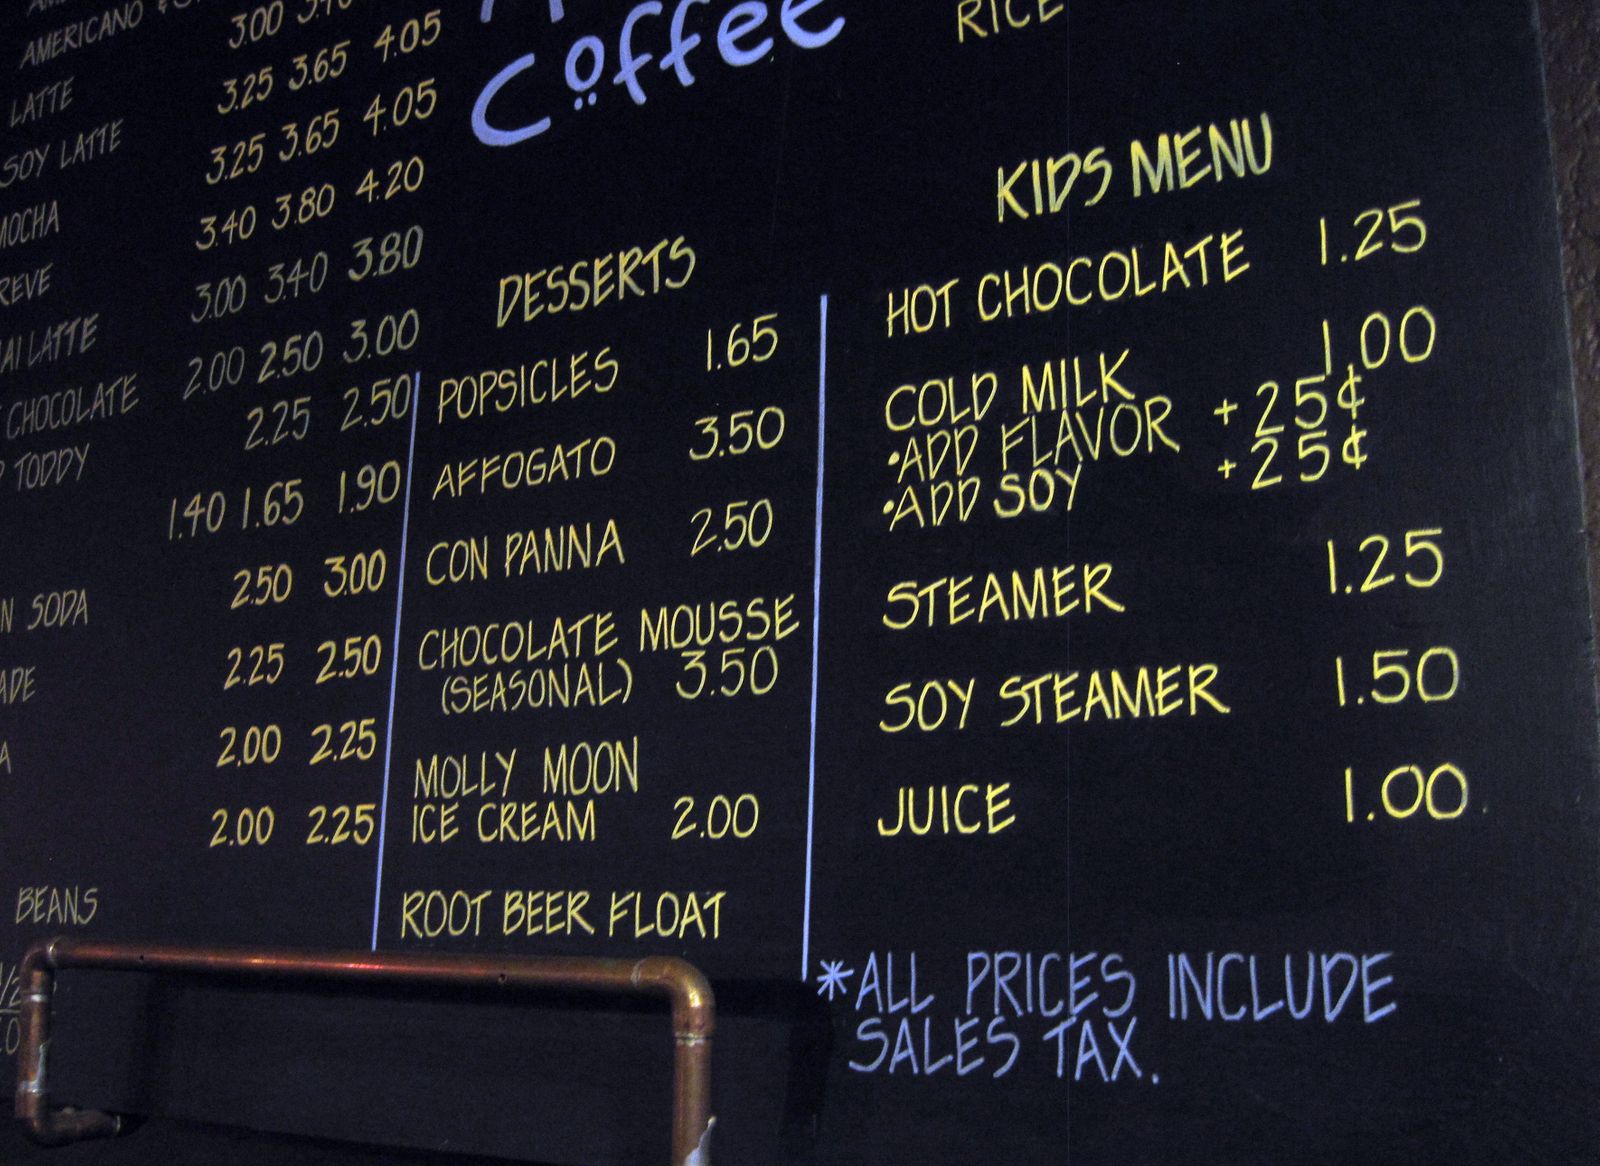 AMERICANO 3.00
LATTE 3.25 3.65 4.05
SOY LATTE 3.25 3.65 4.05
MOCHA 3.40 3.80 4.20
3.00 3.40 3.80
LATTE 2.00 2.50 3.00
CHOCOLATE 2.25 2.50
TODDY
1.40 1.65 1.90
SODA 2.50 3.00
2.25 2.50
2.00 2.25
2.00 2.25
BEANS
Coffee
DESSERTS
POPSICLES 1.65
AFFOGATO 3.50
CON PANNA 2.50
CHOCOLATE MOUSSE
(SEASONAL) 3.50
MOLLY MOON
ICE CREAM 2.00
ROOT BEER FLOAT
RICE
KIDS MENU
HOT CHOCOLATE 1.25
COLD MILK 1.00
•ADD FLAVOR +25¢
•ADD SOY +25¢
STEAMER 1.25
SOY STEAMER 1.50
JUICE 1.00
*ALL PRICES INCLUDE
SALES TAX.